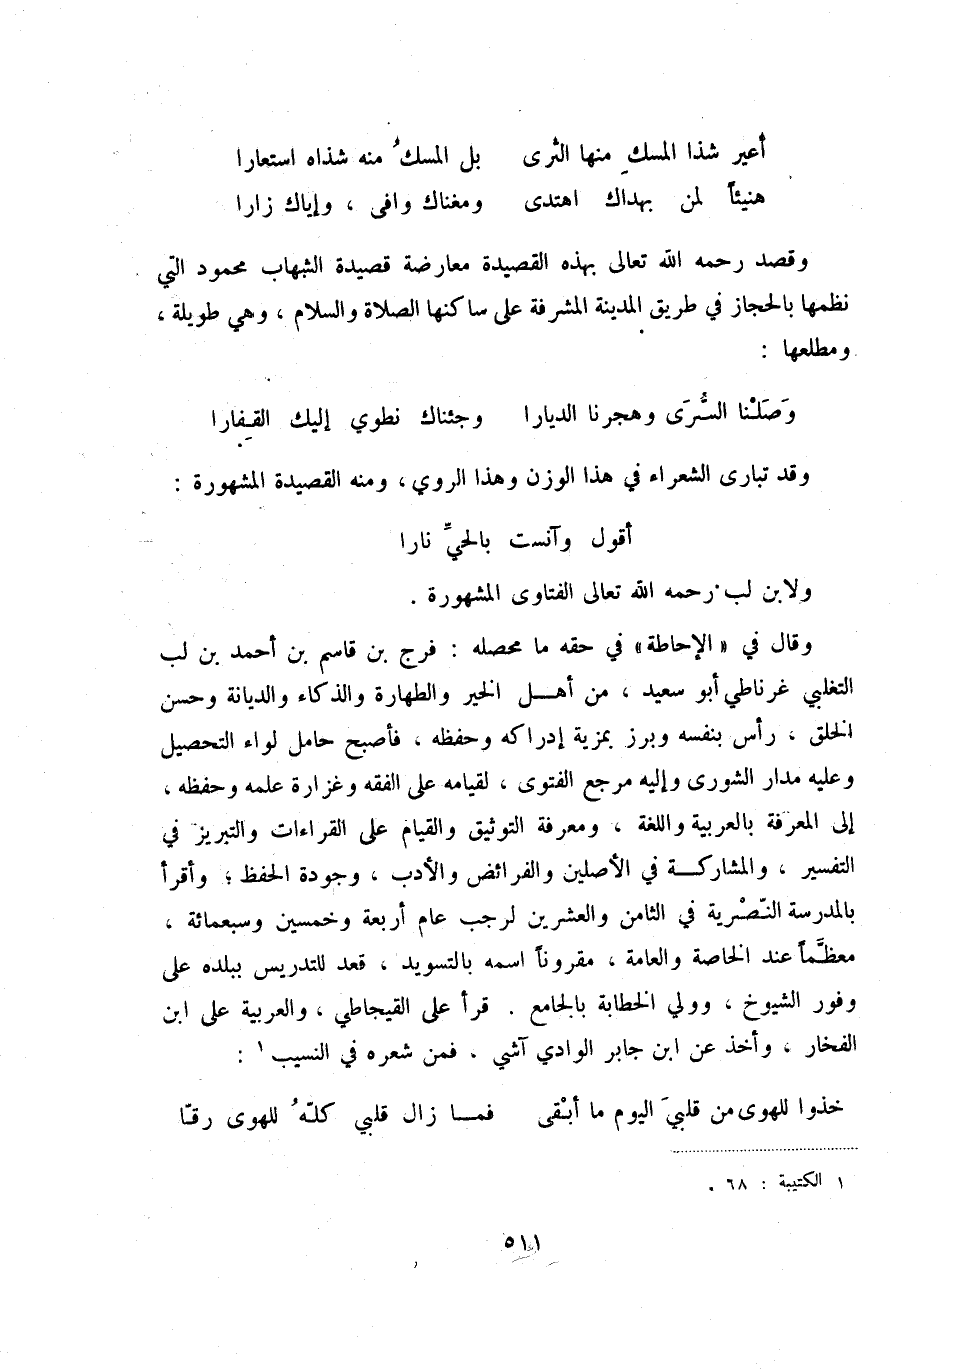 أعير شذا المسكِ منها الثرى    بل المسكُ منه شذاه استعارا
هنيئاً لمن بهداك اهتدى    ومغناك وافى ، وإياك زارا
وقصد رحمه الله تعالى بهذه القصيدة معارضة قصيدة الشهاب محمود التي
نظمها بالحجاز في طريق المدينة المشرفة على ساكنها الصلاة والسلام ، وهي طويلة ،
ومطلعها :
وَصَلْنا السُّرَى وهجرنا الديارا    وجئناك نطوي إليك القِفارا
وقد تبارى الشعراء في هذا الوزن وهذا الروي ، ومنه القصيدة المشهورة :
أقول وآنست بالحيِّ نارا
ولابن لب رحمه الله تعالى الفتاوى المشهورة .
وقال في « الإحاطة » في حقه ما محصله : فرج بن قاسم بن أحمد بن لب
التغلبي غرناطي أبو سعيد ، من أهــل الخير والطهارة والذكاء والديانة وحسن
الخلق ، رأس بنفسه وبرز بمزية إدراكه وحفظه ، فأصبح حامل لواء التحصيل
وعليه مدار الشورى وإليه مرجع الفتوى ، لقيامه على الفقه وغزارة علمه وحفظه ،
إلى المعرفة بالعربية واللغة ، ومعرفة التوثيق والقيام على القراءات والتبريز في
التفسير ، والمشاركــة في الأصلين والفرائض والأدب ، وجودة الحفظ ؛ وأقرأ
بالمدرسة النّصْرية في الثامن والعشرين لرجب عام أربعة وخمسين وسبعمائة ،
معظَّماً عند الخاصة والعامة ، مقروناً اسمه بالتسويد ، قعد للتدريس ببلده على
وفور الشيوخ ، وولي الخطابة بالجامع . قرأ على القيجاطي ، والعربية على ابن
الفخار ، وأخذ عن ابن جابر الوادي آشي . فمن شعره في النسيب ١ :
خذوا للهوى من قلبيَ اليوم ما أبْقى    فمــا زال قلبي كلّهُ للهوى رقّا
١ الكتيبة : ٦٨ .
٥١١